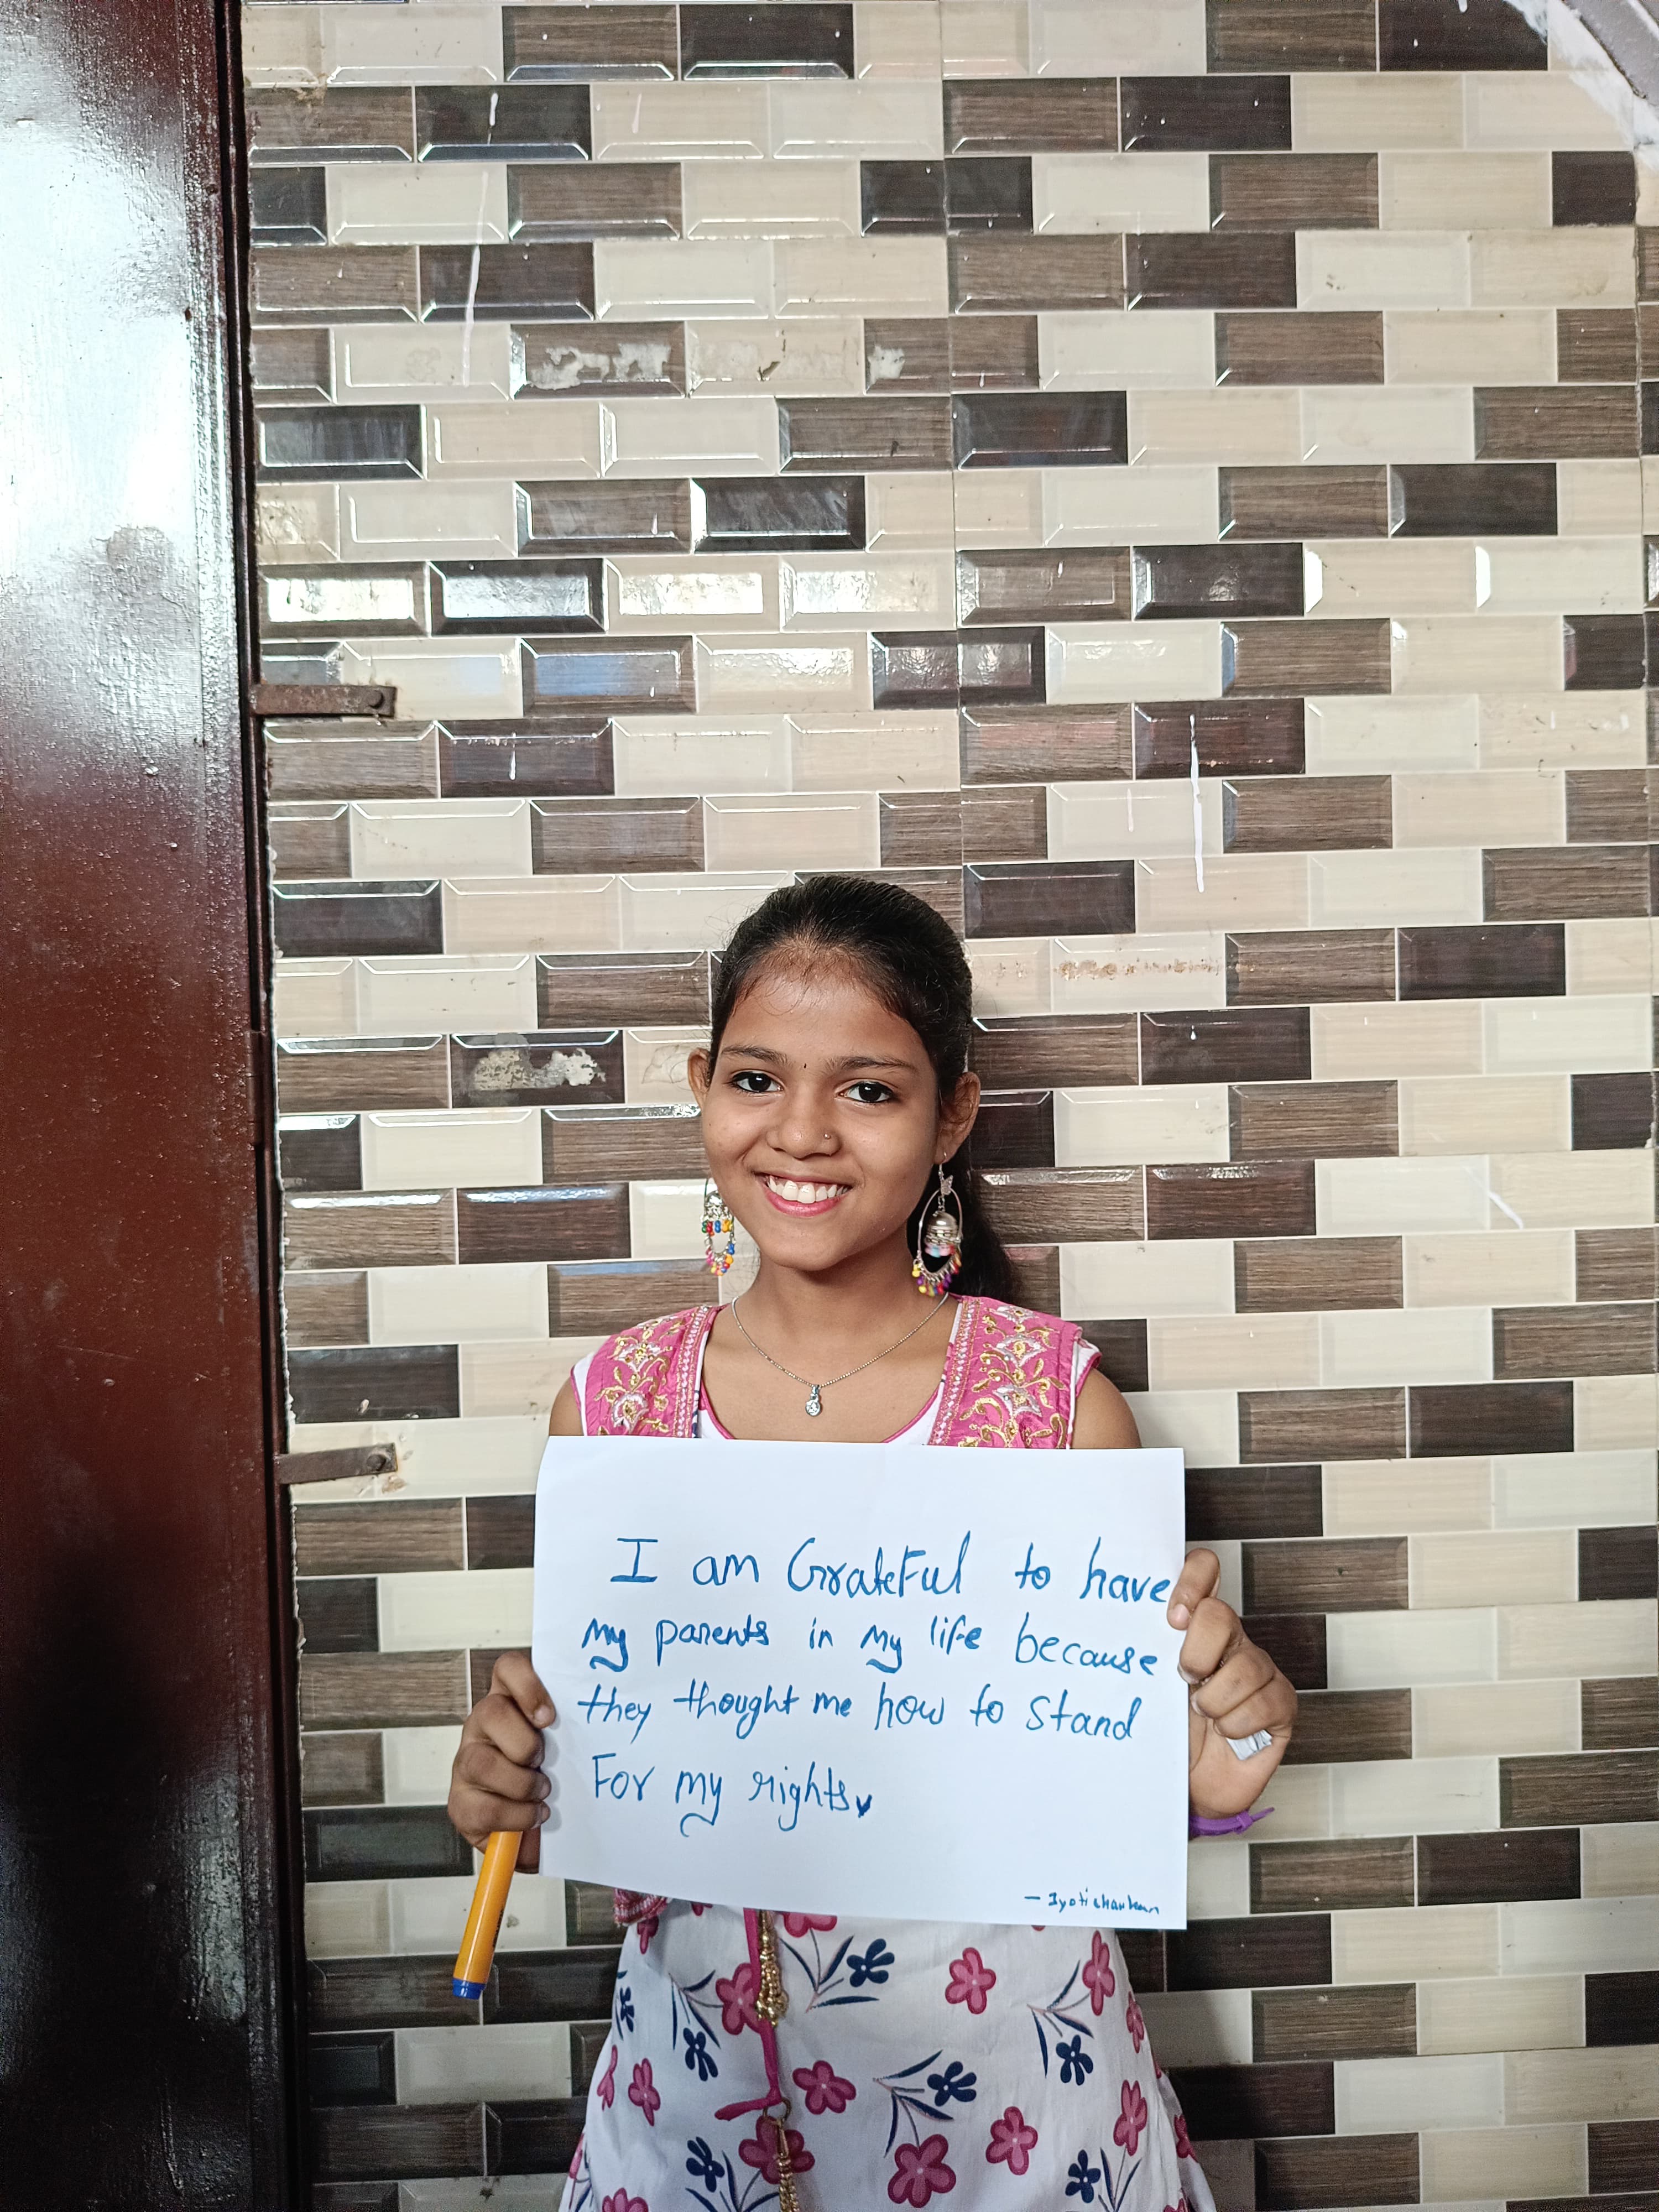 I am GrateFul to have
my parents in my life because
they thought me how to stand
For my rights
— Jyoti